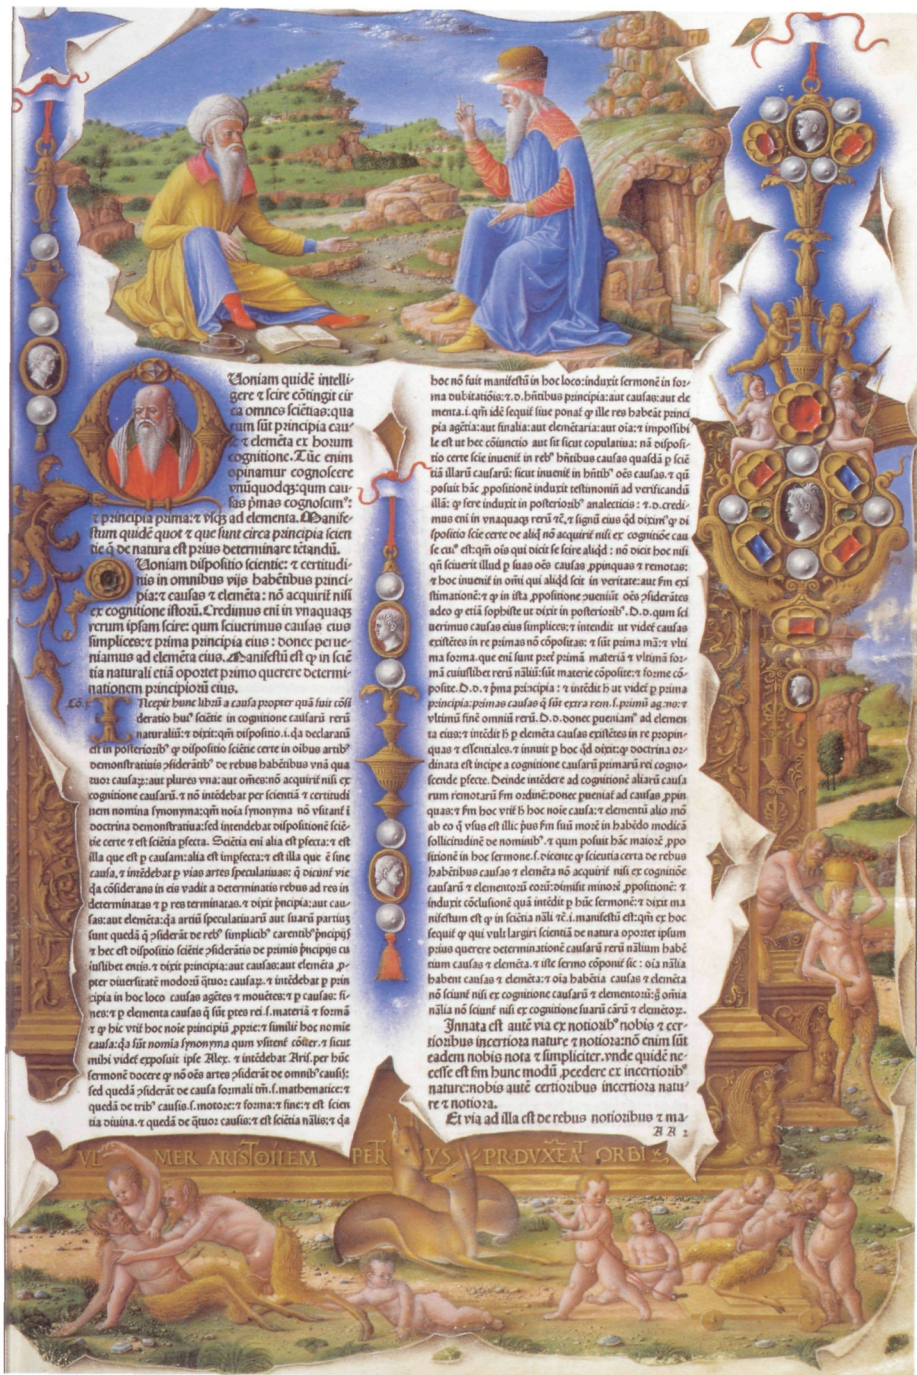 Uoniam quidē intelli/
gere ⁊ scire cōtingit cir
ca omnes sciētias: qua
rum sūt principia cau
⁊ elemēta ex horum
cognitione. Tūc enim
opinamur cognoscere
vnūquodqꝫ: quꝫ cau/
sas pͥmas cognoscimꝰ:
⁊ principia prima: ⁊ vsqꝫ ad elementa. Manife/
stum quidē quot ⁊ que sunt circa principia scien
tie q̄ de natura est prius determinare tētandū.
Uoniam dispositio scientie: ⁊ certitudi/
nis in omnibus vijs habētibus princi/
pia: ⁊ causas ⁊ elemēta: nō acquirit̄ nisi
ex cognitione istoꝝ. Credimus eni in vnaquaqꝫ
rerum ipsam scire: qum sciuerimus causas eius
simplices: ⁊ prima principia eius: donec perue/
niamus ad elemēta eius. Manifestū est qꝫ in sciē
tia naturali etiā oportet primo querere determi/
nationem principioꝝ eius.
Cō. i
Ncepit hunc librū a causa propter quā fuit cōsi
deratio huiꝰ sciētie in cognitione causarū rerū
naturaliū: ⁊ dixit: qm̄ dispositio. i. q̄a declaratū
est in posteriorib̄ ꝙ dispositio sciētie certe in oibus artibꝰ
demonstratiuis ꝯsiderātibꝰ de rebus habētibus vnā qua
tuor causaꝝ: aut plures vna: aut om̄es: nō acquirit̄ nisi ex
cognitione causarū. ⁊ nō intēdebat per scientiā ⁊ certitudi
nem nomina synonyma: qm̄ noīa synonyma nō vsitant̄ ī
doctrina demonstratiua: sed intendebat dispositionē sciē/
tie certe ⁊ est sciētia pfecta. Sciētia eni alia est pfecta: ⁊ est
illa que est p causam: alia est imperfecta: ⁊ est illa que ē sine
causa. ⁊ intēdebat p vias artes speculatiuas: q̄ dicunt̄ vie
q̄a cōsiderans in eis vadit a determinatis rebus ad res in
determinatas ⁊ p res terminatas. ⁊ dixit pͥncipia: aut cau/
sas: aut elemēta: q̄a artiū speculatiuarū aut suarū partiuꝫ
sunt quedā q̄ ꝯsiderāt de rebꝰ simplicibꝰ carentibꝰ pͥncipijs
⁊ hec est dispositio sciētie ꝯsiderātis de primis pͥncipijs cu
iuslibet entis. ⁊ dixit principia: aut causas: aut elemēta ꝓ/
pter diuersitatē modorū q̄tuor causaꝝ. ⁊ intēdebat p prin
cipia in hoc loco causas agētes ⁊ mouētes: ⁊ p causas: fi/
nes: ⁊ p elementa causas q̄ sūt ptes rei. s. materiā ⁊ formā
⁊ ꝙ hic vtit̄ hoc noie principiū ꝓprie: ⁊ similit̄ hoc nomie
causa: q̄a sūt nomia synonyma qum vsitent̄ cōiter. ⁊ sicut
mihi videt̄ exposuit ipse Alex. ⁊ intēdebat Aris. per hūc
sermonē docere ꝙ nō oēs artes ꝯsiderāt de omnibꝰ causis:
sed quedā ꝯsiderāt de causa formali tm̄. s. mathematice: ⁊
quedā de tribꝰ causis. s. motore: ⁊ forma: ⁊ fine: ⁊ est scien
tia diuina. ⁊ quedā de q̄tuor causis: ⁊ est sciētia nālis: ⁊ q̄a
hoc nō fuit manifestū in hoc loco: induxit sermonē in for/
ma dubitatiōis: ⁊. d. hn̄tibus principia: aut causas: aut ele
menta. i. qm̄ idē sequit̄ siue ponat̄ ꝙ ille res habeāt princi
pia agētia: aut finalia: aut elemētaria: aut oīa: ⁊ impossibi
le est ut hec cōiunctio aut sit sicut copulatiua: nā disposi/
tio certe scie inuenit̄ in rebꝰ hn̄tibus causas quasdā p sciē
tiā illarū causarū: sicut inuenit̄ in hn̄tibꝰ oēs causas. ⁊ qū
posuit hāc ꝓpositionē induxit testimoniū ad verificandū
illā: ꝙ fere induxit in posterioribꝰ analecticis: ⁊. d. credi/
mus eni in vnaquaqꝫ rerū ⁊c̄. ⁊ signū eius qd̄ diximꝰ ꝙ di
spositio scie certe de aliq̄ nō acquirit̄ nisi ex cognitiōe cau
se eiꝰ est: qm̄ oīs qui dicit se scire aliqd̄: nō dicit hoc nisi
qn̄ sciuerit illud p suas oēs causas ꝓpinquas ⁊ remotas:
⁊ hoc inuenit̄ in om̄i qui aliqd̄ scit in veritate: aut fm̄ exi
stimationē: ⁊ ꝙ in ista ꝓpositione ꝯueniūt oēs ꝯsiderātes
adeo ꝙ etiā sophiste ut dixit in posterioribꝰ. D. d. qum sci
uerimus causas eius simplices: ⁊ intendit ut videt̄ causas
existētes in re primas nō cōpositas: ⁊ sūt prima mā: ⁊ vlti
ma forma. que eni sunt pret̄ primā materiā ⁊ vltimā for/
mā cuiuslibet rerū nāliū: sūt materie cōposite: ⁊ forme cō/
posite. D. d. ⁊ pͥma principia: ⁊ intēdit ut videt̄ p prima
principia: primas causas q̄ sūt extra rem. s. primū aḡns: ⁊
vltimū finē omniū rerū. D. d. donec pueniamꝰ ad elemen
ta eius: ⁊ intēdit p elemēta causas existētes in re propin/
quas ⁊ essentiales. ⁊ innuit p hoc qd̄ dixit: ꝙ doctrina or/
dinata est incipe a cognitione causarū primarū rei cogno/
scende pfecte. Deinde intēdere ad cognitionē aliarū causa
rum remotarū fm̄ ordinē: donec pueniat̄ ad causas ꝓpin
quas: ⁊ fm hoc vtit̄ hoc noie causa: ⁊ elementū alio mō
ab eo q̄ vsus est illic pͥus fm suū morē in habēdo modicā
sollicitudinē de nominibꝰ. ⁊ qum posuit hāc maiorē ꝓpo
sitionē in hoc sermone. s. dicente ꝙ scientia certa de rebus
habētibus causas ⁊ elemēta nō acquirit̄ nisi ex cognitiōe
causarū ⁊ elementorū eorū: dimisit minorē ꝓpositionē: ⁊
induxit cōclusionē quā intēdit p hūc sermonē: ⁊ dixit ma
nifestum est ꝙ in sciētia nāli ⁊c̄. i. manifestū est: qm̄ ex hoc
sequit̄ ꝙ qui vult largiri scientiā de natura oportet ipsum
prius querere determinationē causarū rerū nālium habē
tium causas ⁊ elemēta. ⁊ iste sermo cōponit̄ sic: oīa nālia
habent causas ⁊ elemēta: ⁊ oīa habētia causas ⁊ elemēta
nō sciunt̄ nisi ex cognitione causarū ⁊ elementorū: g̊ omīa
nālia nō sciūt̄ nisi ex cognitione suarū causarū ⁊ elemētoꝝ.
Innata est autē via ex notioribꝰ nobis ⁊ cer/
tioribus incertiora nature ⁊ notiora: nō enim sūt
eadem nobis nota ⁊ simpliciter. vnde quidē ne/
cesse est fm hunc modū ꝓcedere ex incertioribꝰ
nature: nobis autē certioribus incertiora natu/
re ⁊ notiora.
Et via ad illa est de rebus notioribus ⁊ ma/
AA 2
VL MER ARISTOTILEM PETRVS PRODVXERAT ORBI